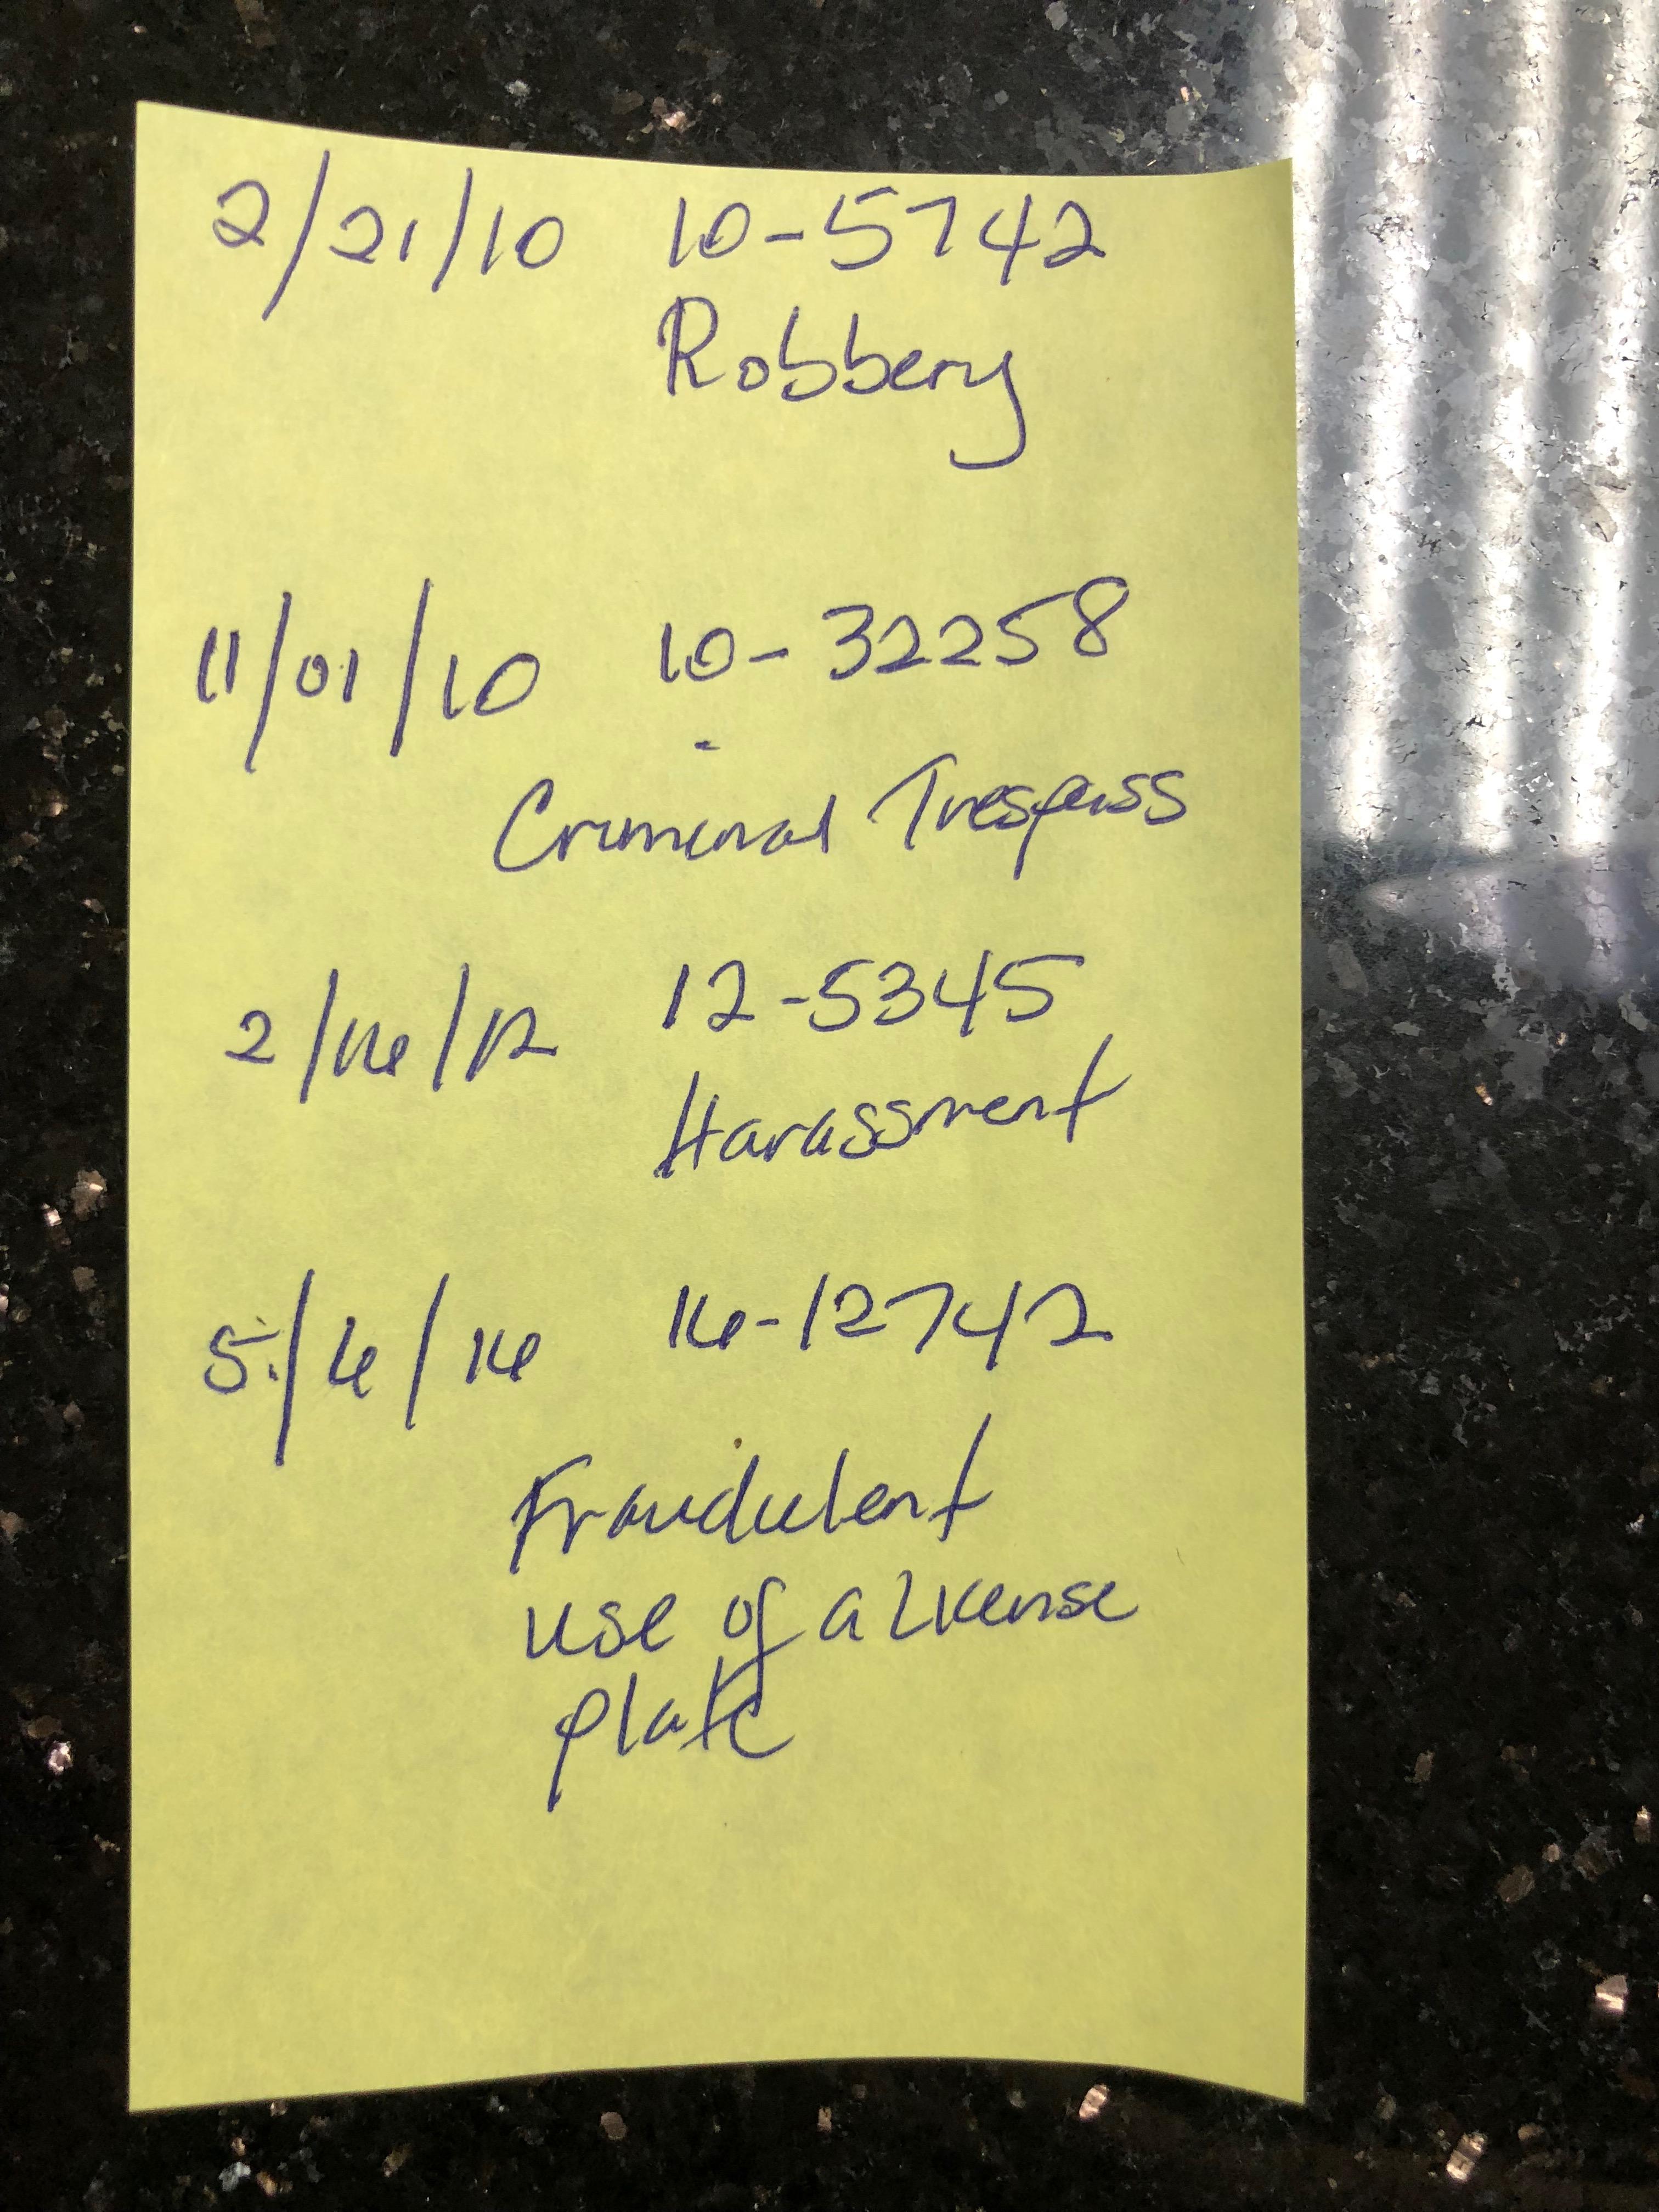 2/21/10 10-5742
Robbery
11/01/10 10-32258
Criminal Trespass
2/16/12 12-5345
Harassment
5/6/16 16-12742
Fraudulent
use of a License
plate